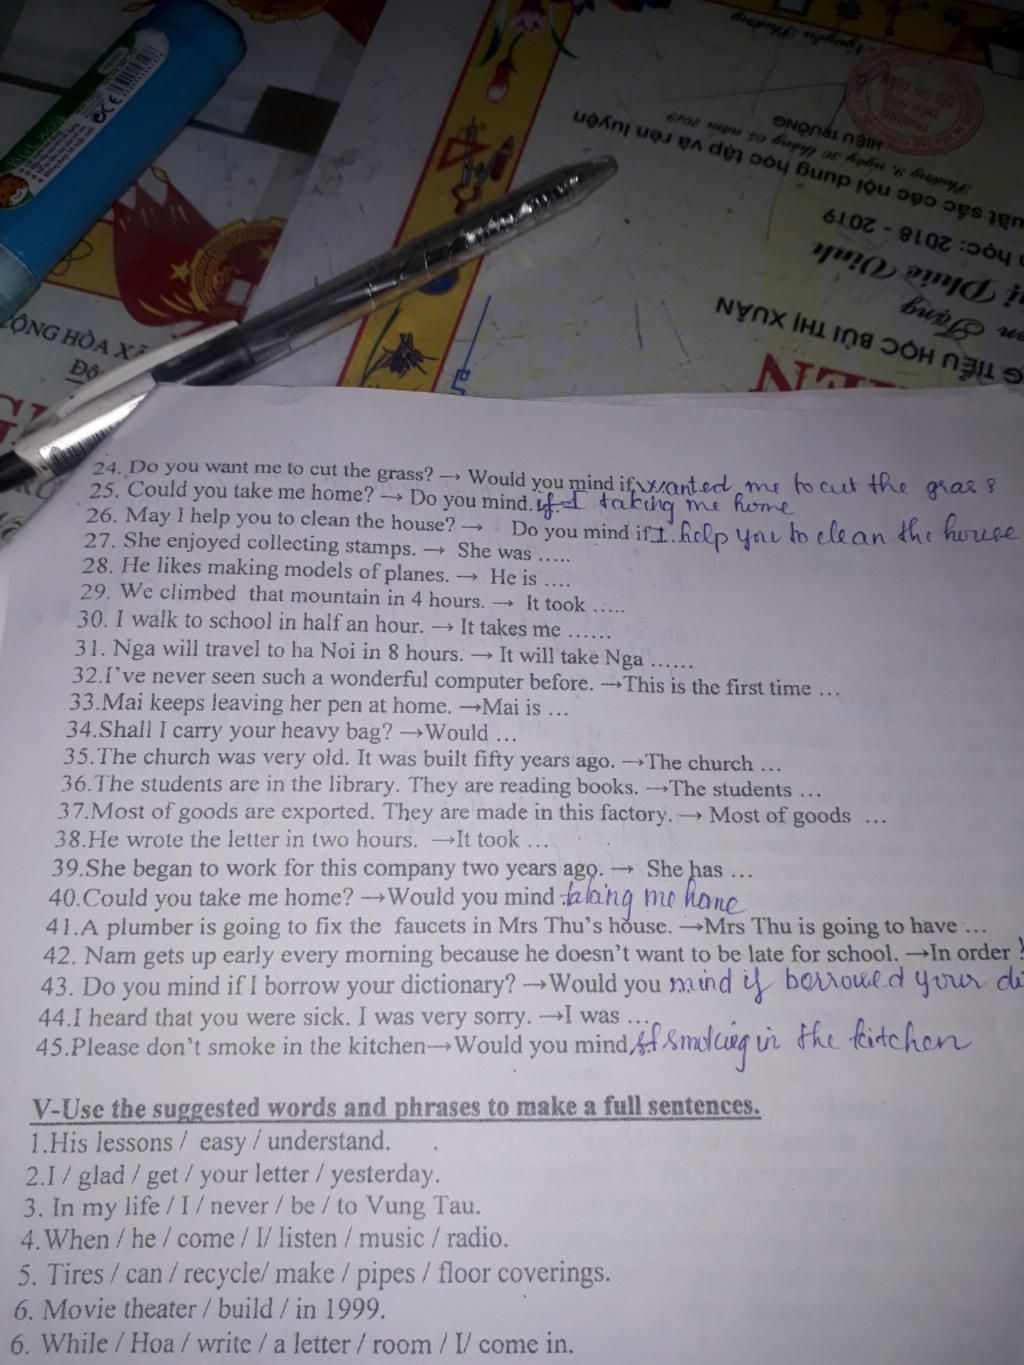 Nguyễn Phương
HIỆU TRƯỞNG
Phường 9, ngày 30 tháng 05 năm 2019
uất sắc các nội dung học tập và rèn luyện
học: 2018 - 2019
G TIỂU HỌC BÙI THỊ XUÂN
ỘNG HÒA X
Độ
24. Do you want me to cut the grass? → Would you mind if wanted me to cut the grass
25. Could you take me home? → Do you mind. if I taking me home
26. May I help you to clean the house? → Do you mind if I help you to clean the house
27. She enjoyed collecting stamps. → She was .....
28. He likes making models of planes. → He is ....
29. We climbed that mountain in 4 hours. → It took .....
30. I walk to school in half an hour. → It takes me ......
31. Nga will travel to ha Noi in 8 hours. → It will take Nga ......
32.I've never seen such a wonderful computer before. →This is the first time ...
33.Mai keeps leaving her pen at home. →Mai is ...
34.Shall I carry your heavy bag? →Would ...
35.The church was very old. It was built fifty years ago. →The church ...
36.The students are in the library. They are reading books. →The students ...
37.Most of goods are exported. They are made in this factory. → Most of goods ...
38.He wrote the letter in two hours. →It took ...
39.She began to work for this company two years ago. → She has ...
40.Could you take me home? →Would you mind taking me home
41.A plumber is going to fix the faucets in Mrs Thu's house. →Mrs Thu is going to have ...
42. Nam gets up early every morning because he doesn't want to be late for school. →In order
43. Do you mind if I borrow your dictionary? →Would you mind if borrowed your di
44.I heard that you were sick. I was very sorry. →I was ...
45.Please don't smoke in the kitchen→Would you mind smoking in the kitchen
V-Use the suggested words and phrases to make a full sentences.
1.His lessons / easy / understand.
2.I / glad / get / your letter / yesterday.
3. In my life / I / never / be / to Vung Tau.
4. When / he / come / I/ listen / music / radio.
5. Tires / can / recycle/ make / pipes / floor coverings.
6. Movie theater / build / in 1999.
6. While / Hoa / write / a letter / room / I/ come in.